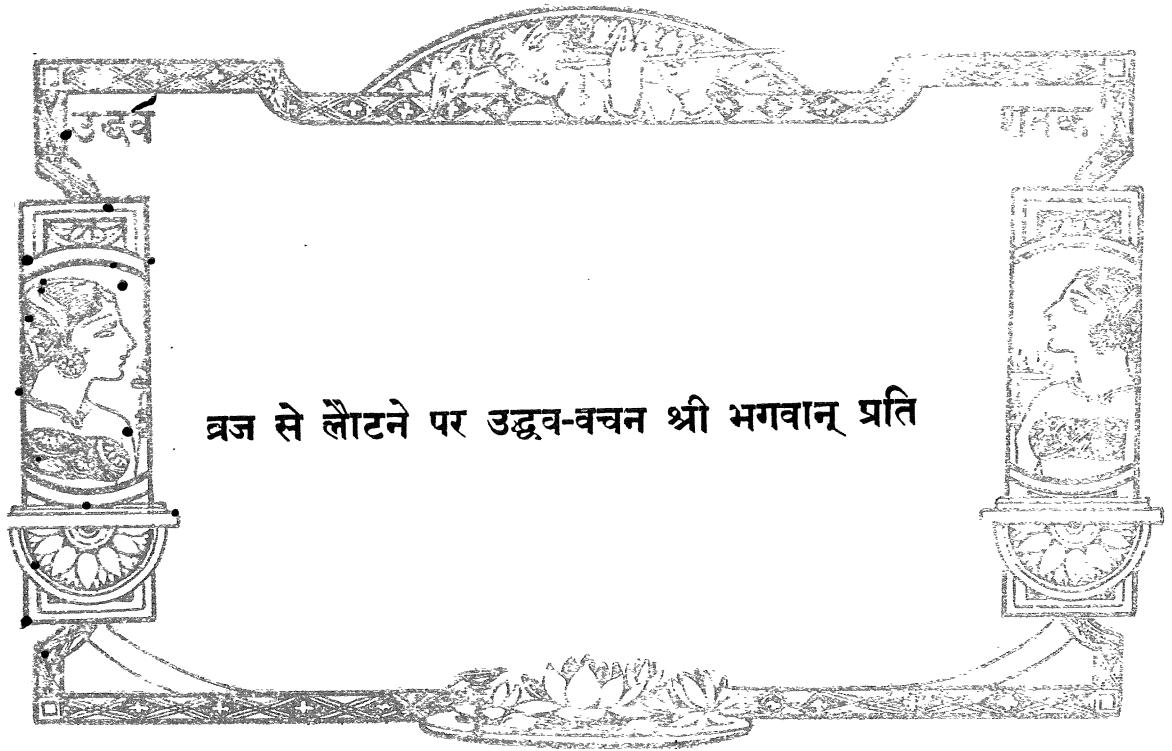 उद्धव शतक
व्रज से लौटने पर उद्धव-वचन श्री भगवान् प्रति